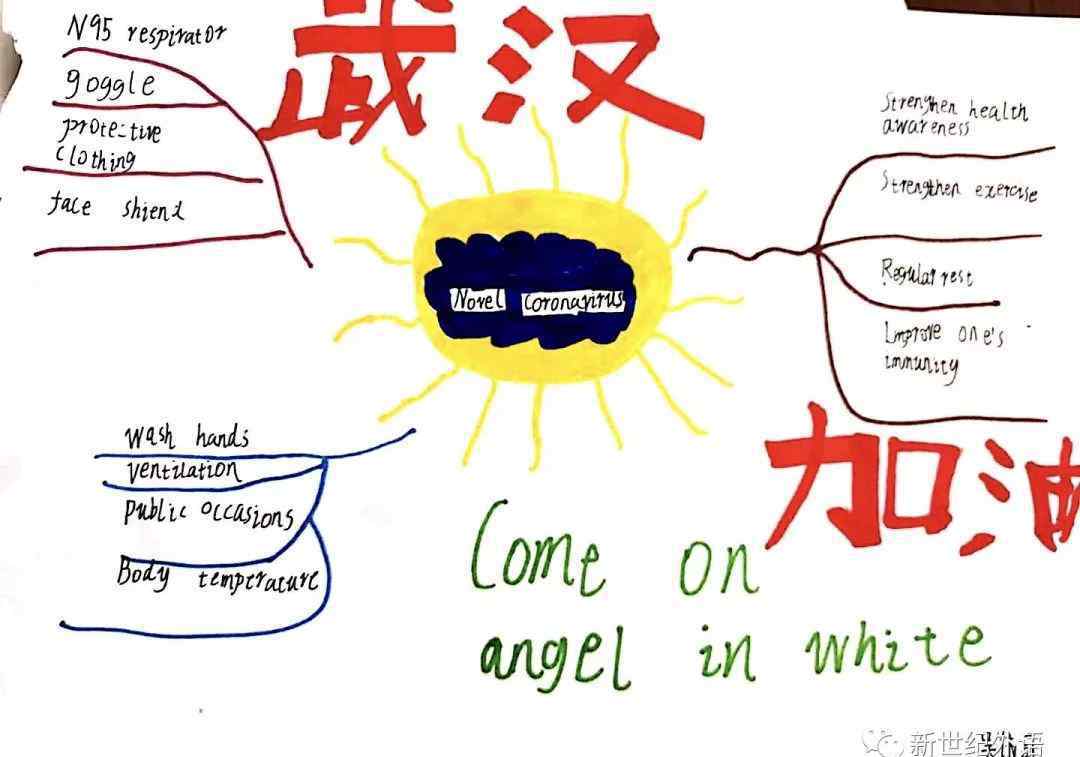 武汉
N95 respirator
goggle
protective
clothing
face shield
Novel Coronavirus
Strenghen health
awareness
Strengthen exercise
Regular rest
Improve one's
immunity
wash hands
ventilation
Public occasions
Body temperature
加油
Come on
angel in white
新世纪外语